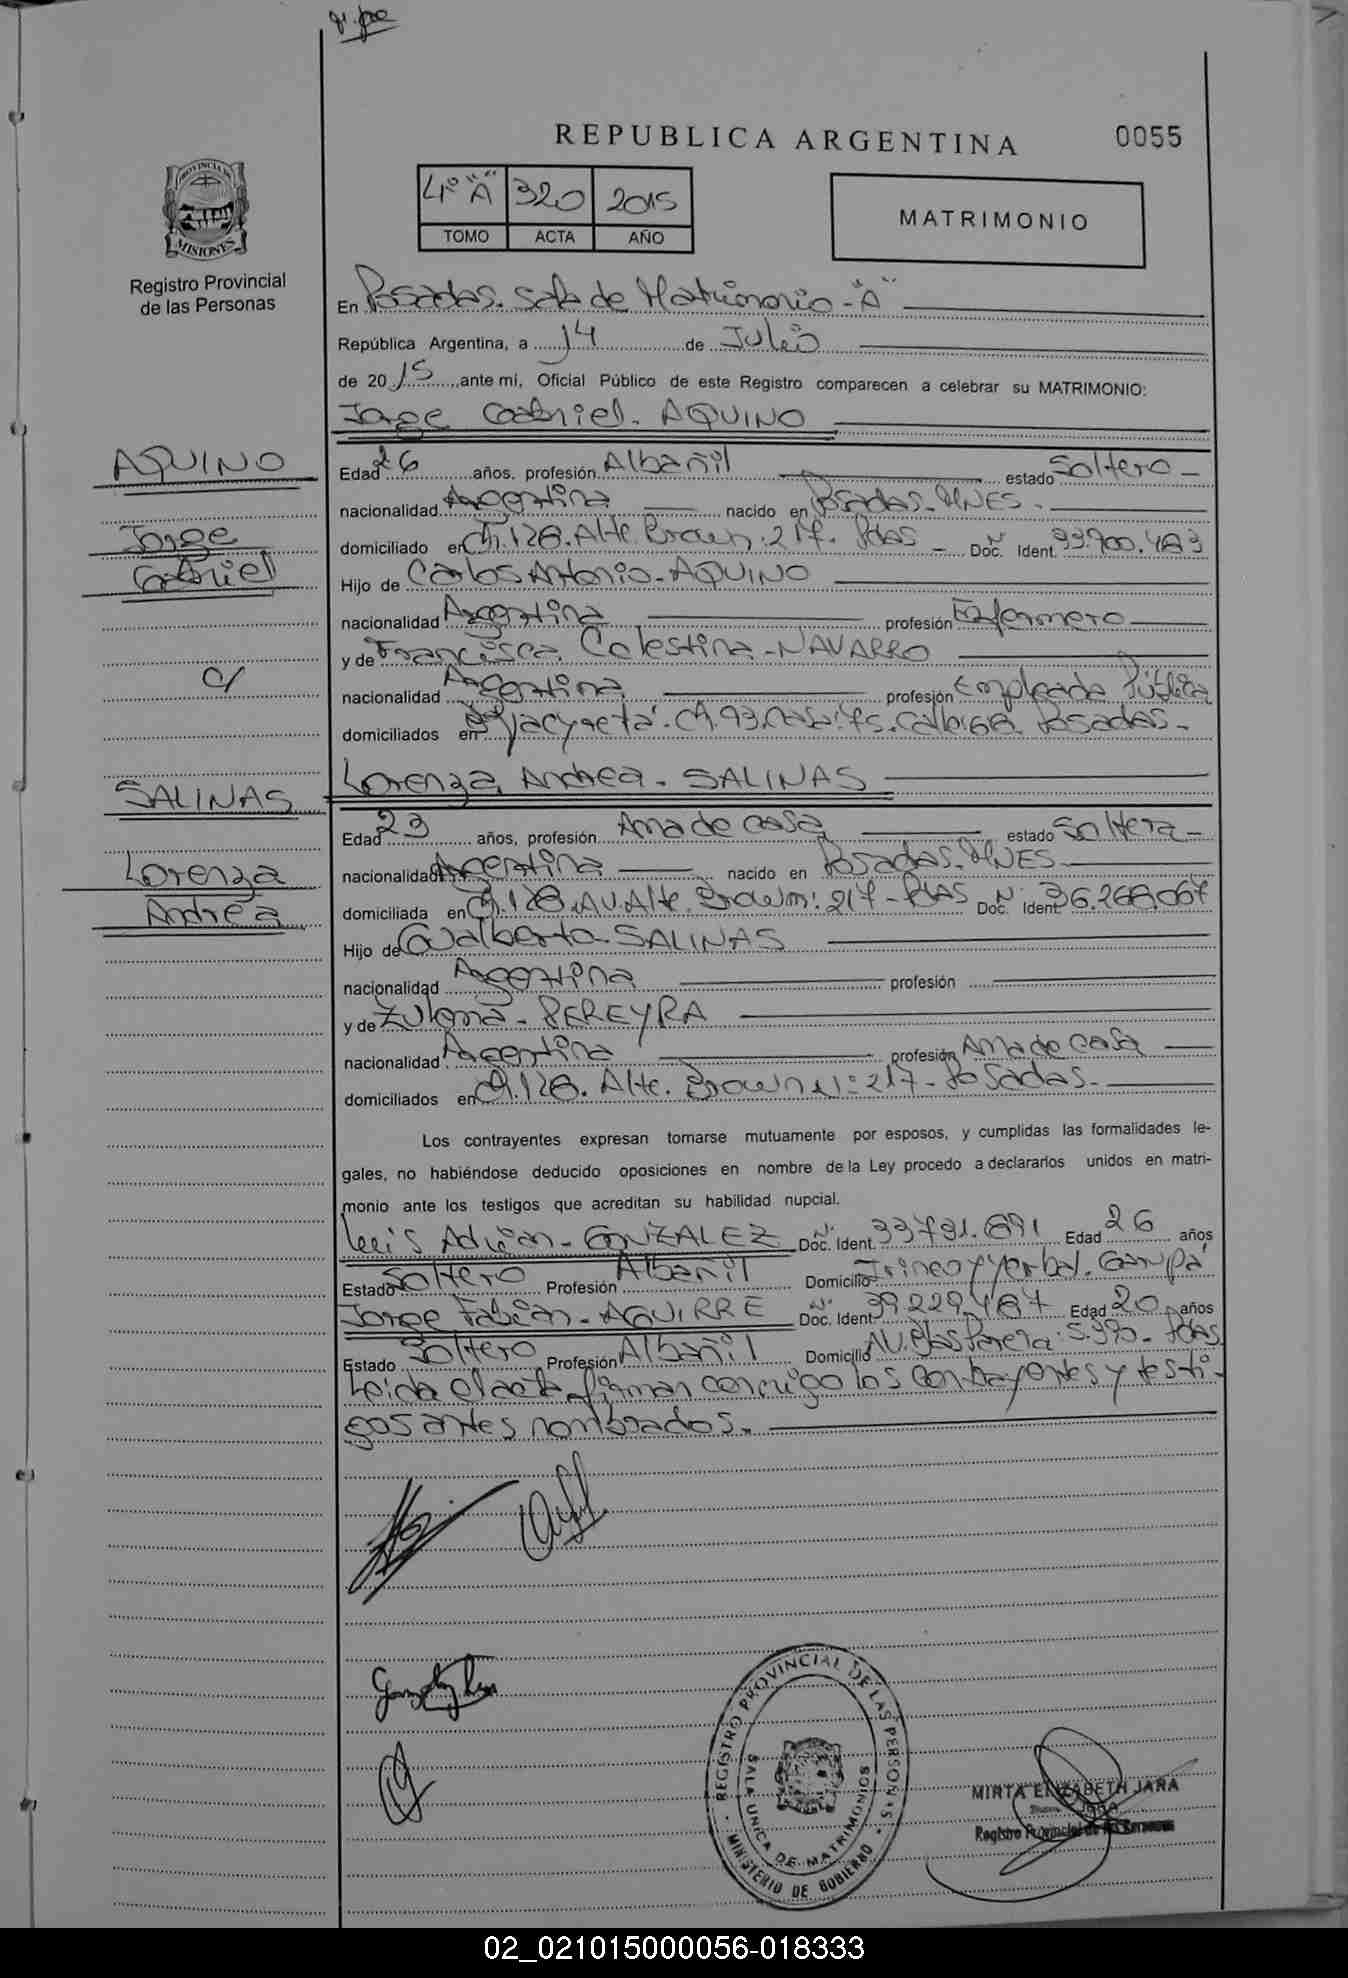 REPUBLICA ARGENTINA
0055
4º "A" 320 2015
TOMO ACTA AÑO
MATRIMONIO
PROVINCIA DE
MISIONES
Registro Provincial
de las Personas
En Posadas. Sala de Matrimonio - "A"
República Argentina, a 14 de Julio
de 2015, ante mí, Oficial Público de este Registro comparecen a celebrar su MATRIMONIO:
Jorge Gabriel. AQUINO
AQUINO
Jorge
Gabriel
c/
SALINAS
Lorenza
Andrea
Edad 26 años, profesión Albañil estado Soltero -
nacionalidad Argentina nacido en Posadas. MNES.
domiciliado en Ch. 128. Alte. Brown: 217. Pdas - Nº Doc. Ident. 33.900.483
Hijo de Carlos Antonio - AQUINO
nacionalidad Argentina profesión Enfermero
y de Francisca Celestina - NAVARRO
nacionalidad Argentina profesión Empleada Pública
domiciliados en Bº Yacyreta. Ch. 93. Casa: 75. Calle: 68. Posadas -
Lorenza Andrea - SALINAS
Edad 23 años, profesión Ama de casa estado Soltera -
nacionalidad Argentina nacido en Posadas. MNES -
domiciliada en Ch. 128. AV. Alte. Brown: 217 - Pdas Nº Doc. Ident. 36.268.067
Hijo de Gualberto - SALINAS
nacionalidad Argentina profesión
y de Zulema - PEREYRA
nacionalidad Argentina profesión Ama de casa
domiciliados en Ch. 128. Alte. Brown Nº: 217 - Posadas -
Los contrayentes expresan tomarse mutuamente por esposos, y cumplidas las formalidades le-
gales, no habiéndose deducido oposiciones en nombre de la Ley procedo a declararlos unidos en matri-
monio ante los testigos que acreditan su habilidad nupcial.
Luis Adrián - GONZALEZ Nº Doc. Ident. 33.731.891 Edad 26 años
Estado Soltero Profesión Albañil Domicilio Trincó y Yerbal. Garupá
Jorge Fabián - AGUIRRE Nº Doc. Ident. 39.229.487 Edad 20 años
Estado Soltero Profesión Albañil Domicilio AV. Blas Parera: 5.970 - Pdas
Leida el acta firman conmigo los contrayentes y testi-
gos antes nombrados.
REGISTRO PROVINCIAL DE LAS PERSONAS
SALA UNICA DE MATRIMONIOS
MINISTERIO DE GOBIERNO
MIRTA ELIZABETH JARA
Registro Provincial de las Personas
02_021015000056-018333